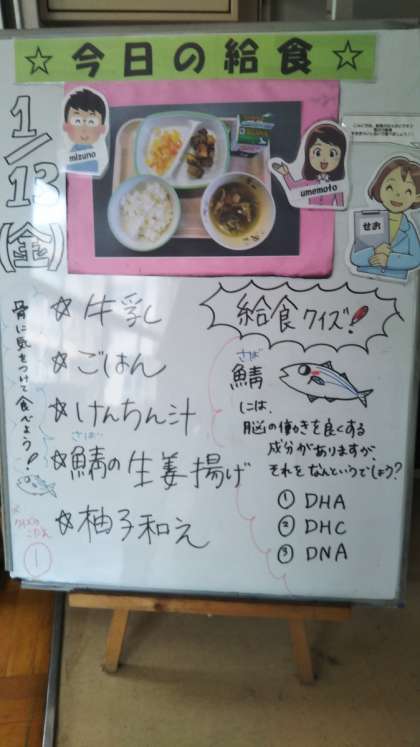 ☆ 今日の給食 ☆
1/13
(金)
mizuno
umemoto
せお
☆ 牛乳
☆ ごはん
☆ けんちん汁
さば
☆ 鯖の生姜揚げ
☆ 柚子和え
骨に気をつけて
食べよう!
給食クイズ!
さば
鯖
には、
脳の働きを良くする
成分がありますが、
それをなんというでしょう?
① DHA
② DHC
③ DNA
クイズの
こたえ
①